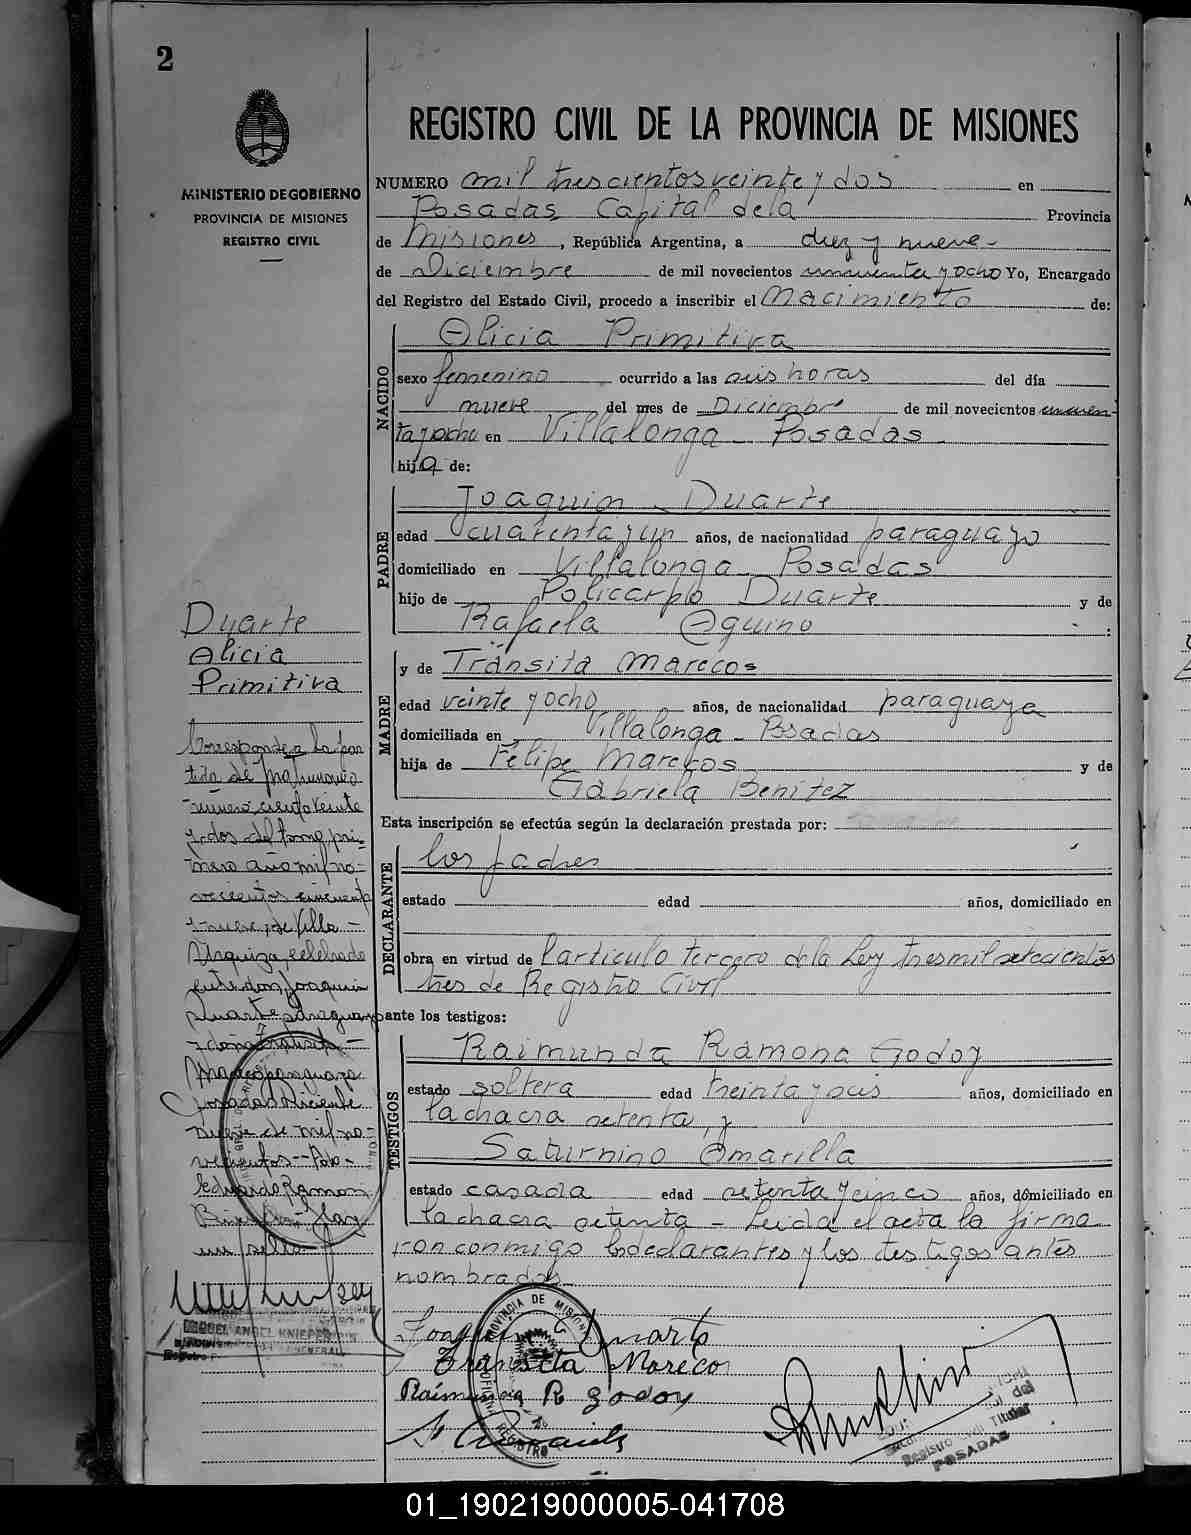 2
MINISTERIO DE GOBIERNO
PROVINCIA DE MISIONES
REGISTRO CIVIL
Duarte
Alicia
Primitiva
Corresponde a la par
tida de matrimonio
número ciento veinte
y dos del tomo pri-
mero año mil no-
vecientos cincuenta
y nueve, de Villa
Urquiza, celebrado
entre don Joaquin
Duarte paraguayo
y doña Transita
Marecos paraguaya
Posadas Diciembre
nueve de mil no-
vecientos
Eduardo Ramon
un sello
MIGUEL ANGEL KNIEPER
REGISTRO CIVIL DE LA PROVINCIA DE MISIONES
NUMERO mil trescientos veinte y dos en
Posadas Capital de la Provincia
de Misiones, República Argentina, a diez y nueve
de Diciembre de mil novecientos cincuenta y ocho Yo, Encargado
del Registro del Estado Civil, procedo a inscribir el Nacimiento de:
NACIDO
Alicia Primitiva
sexo femenino ocurrido a las seis horas del día
nueve del mes de Diciembre de mil novecientos cincuen-
ta y ocho en Villalonga - Posadas
hija de:
PADRE
Joaquin Duarte
edad cuarenta y un años, de nacionalidad paraguayo
domiciliado en Villalonga - Posadas
hijo de Policarpo Duarte y de
Rafaela Aquino :
MADRE
y de Tránsita Marecos
edad veinte y ocho años, de nacionalidad paraguaya
domiciliada en Villalonga - Posadas
hija de Felipe Marecos y de
Gabriela Benitez
Esta inscripción se efectúa según la declaración prestada por:
DECLARANTE
los padres
estado edad años, domiciliado en
obra en virtud de l articulo tercero de la Ley tres mil setecientos
tres de Registro Civil
ante los testigos:
TESTIGOS
Raimunda Ramona Godoy
estado soltera edad treinta y seis años, domiciliado en
la chacra setenta, y
Saturnino Amarilla
estado casada edad setenta y cinco años, domiciliado en
la chacra setenta - Leida el acta la firma
ron conmigo los declarantes y los testigos antes
nombrados
Joaquin Duarte
Transita Mareco
Raimunda R godoy
PROVINCIA DE MISIONES
REGISTRO
Registro Civil Titular
POSADAS
01_190219000005-041708